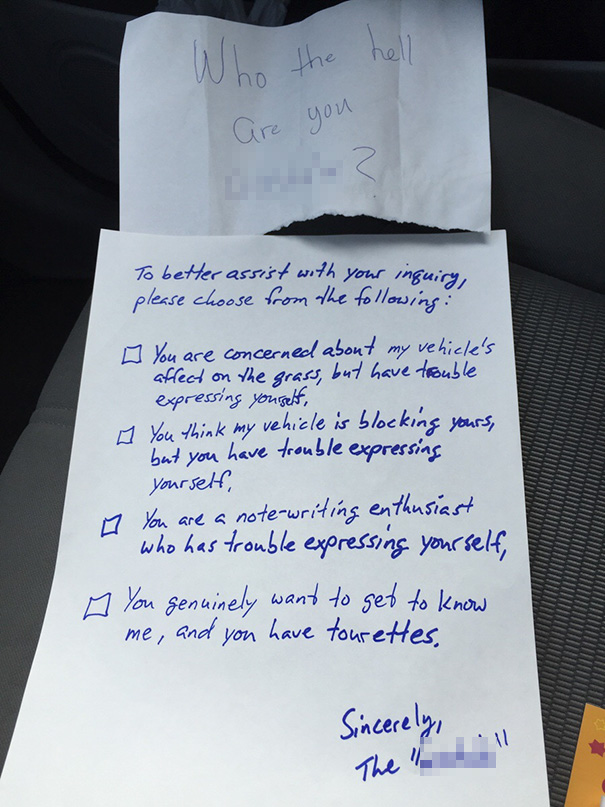 Who the hell
are you
?
To better assist with your inquiry,
please choose from the following:
You are concerned about my vehicle's
affect on the grass, but have trouble
expressing yourself.
You think my vehicle is blocking yours,
but you have trouble expressing
yourself.
You are a note-writing enthusiast
who has trouble expressing yourself,
You genuinely want to get to know
me, and you have tourettes.
Sincerely,
The " "